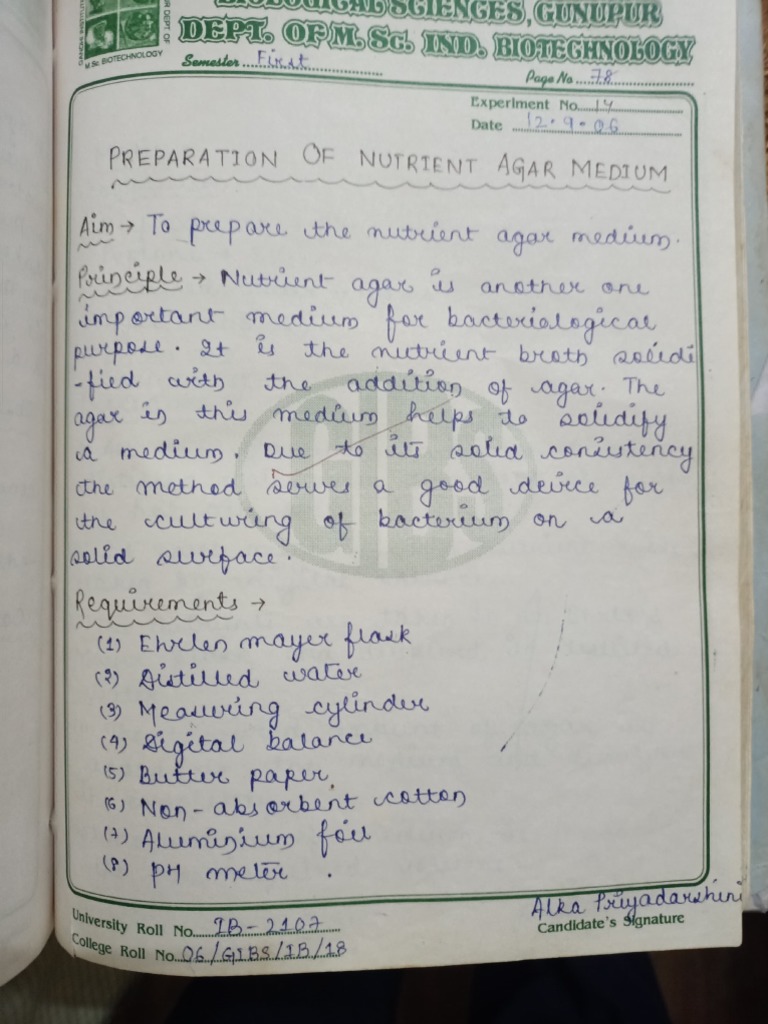 BIOLOGICAL SCIENCES, GUNUPUR
DEPT. OF M. Sc. IND. BIOTECHNOLOGY
M.Sc BIOTECHNOLOGY
Semester First
Page No 78
Experiment No. 14
Date 12.9.06
PREPARATION OF NUTRIENT AGAR MEDIUM
Aim → To prepare the nutrient agar medium.
Principle → Nutrient agar is another one
important medium for bacteriological
purpose. It is the nutrient broth solidi
-fied with the addition of agar. The
agar in this medium helps to solidify
a medium. Due to its solid consistency
the method serves a good deirce for
the culturing of bacterium on a
solid surface.
GIBS
Requirements →
(1) Ehrlen mayer flask
(2) Distilled water
(3) Measuring cylinder
(4) Digital balance
(5) Butter paper
(6) Non-absorbent cotton
(7) Aluminium foil
(8) pH meter.
University Roll No. IB-2107
College Roll No. 06/GIBS/IB/18
Alka Priyadarshini
Candidate's Signature